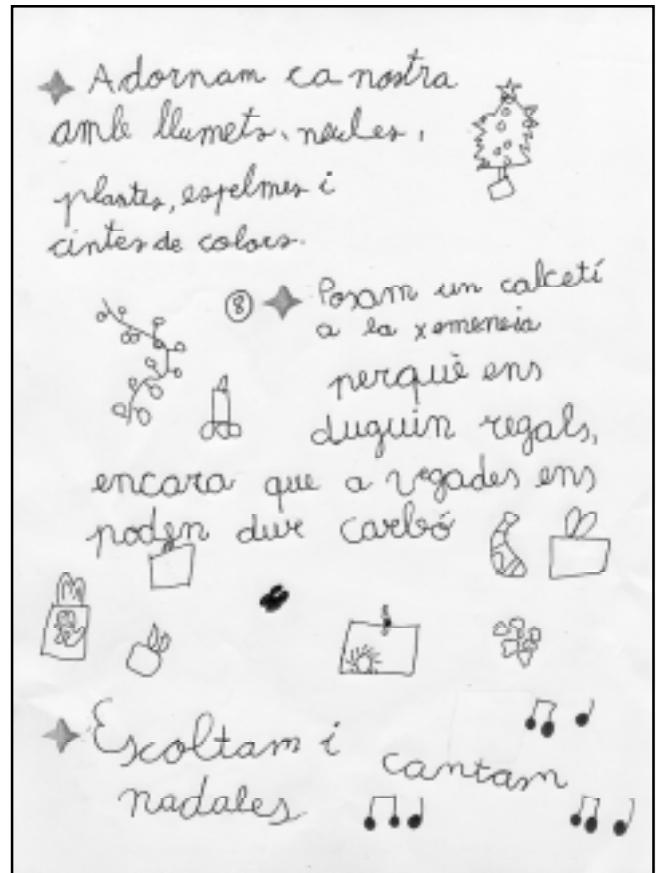 Adornam ca nostra
amb llumets, neules,
plantes, espelmes i
cintes de colors.
8 Posam un calcetí
a la xemeneia
perquè ens
duguin regals,
encara que a vegades ens
poden dur carbó
Escoltam i cantam
nadales